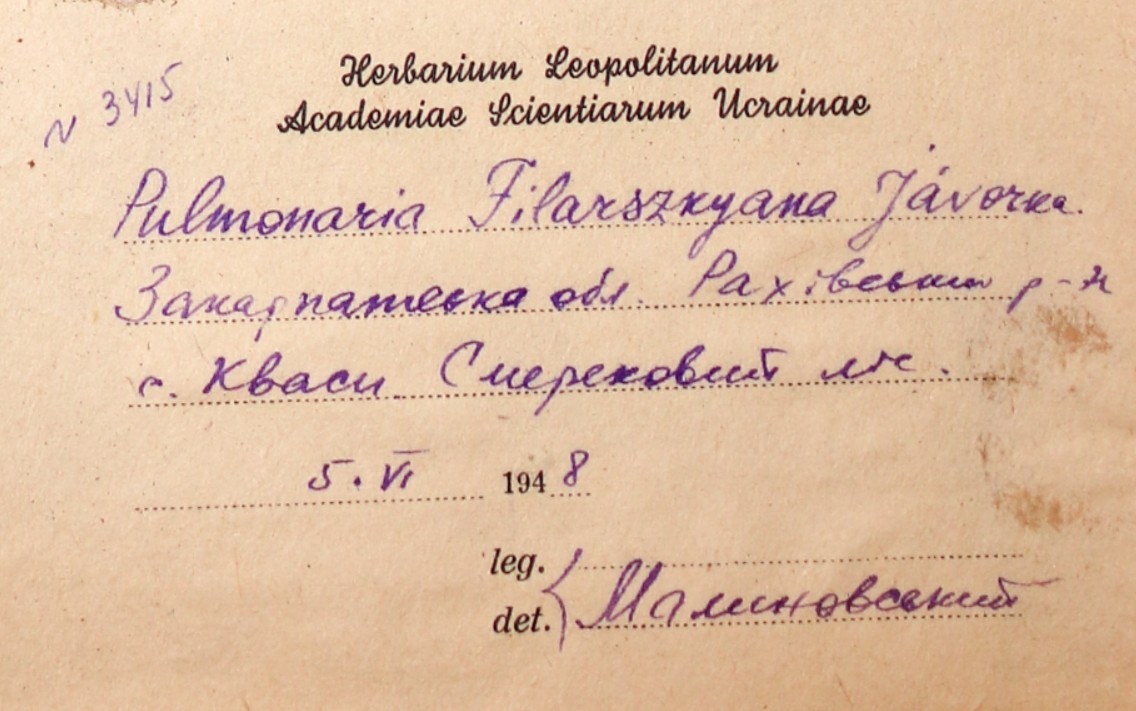 Herbarium Leopolitanum
Academiae Scientiarum Ucrainae
N 3415
Pulmonaria Filarszkyana Jávorka.
Закарпатська обл. Рахівський р-н
с. Кваси. Смерековий ліс.
5. VI 1948
leg.
det. Малиновський